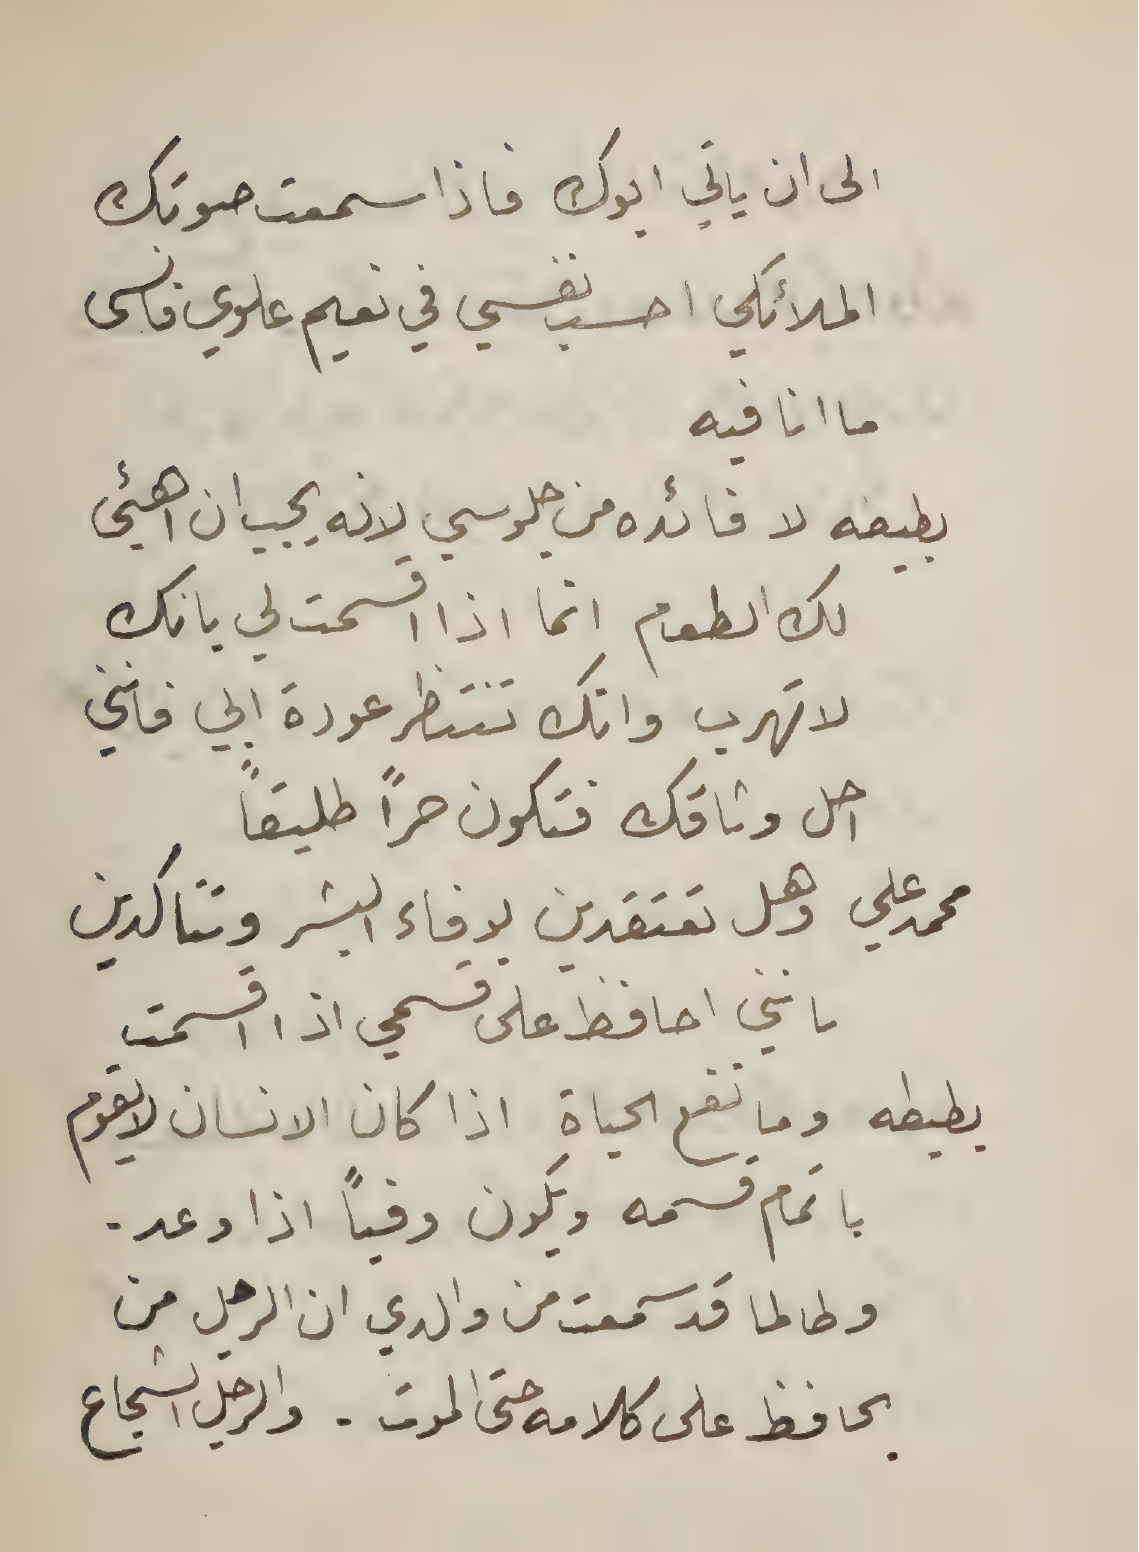 الى ان ياتي ابوك فاذا سمعت صوتك
الملائكي احسب نفسي في نعيم علوي فانسى
ما انا فيه
بطيطه لا فائده من جلوسي لانه يجب ان اهيئ
لك الطعام انما اذا اقسمت لي بانك
لا تهرب وانك تنتظر عودة ابي فانني
احل وثاقك فتكون حراً طليقاً
محمد علي وهل تعتقدين بوفاء البشر وتتاكدين
بانني احافظ على قسمي اذا اقسمت
بطيطه وما نفع الحياة اذا كان الانسان لا يقوم
باتمام قسمه ويكون وفياً اذا وعد -
وطالما قد سمعت من والدي ان الرجل من
يحافظ على كلامه حتى الموت - والرجل الشجاع